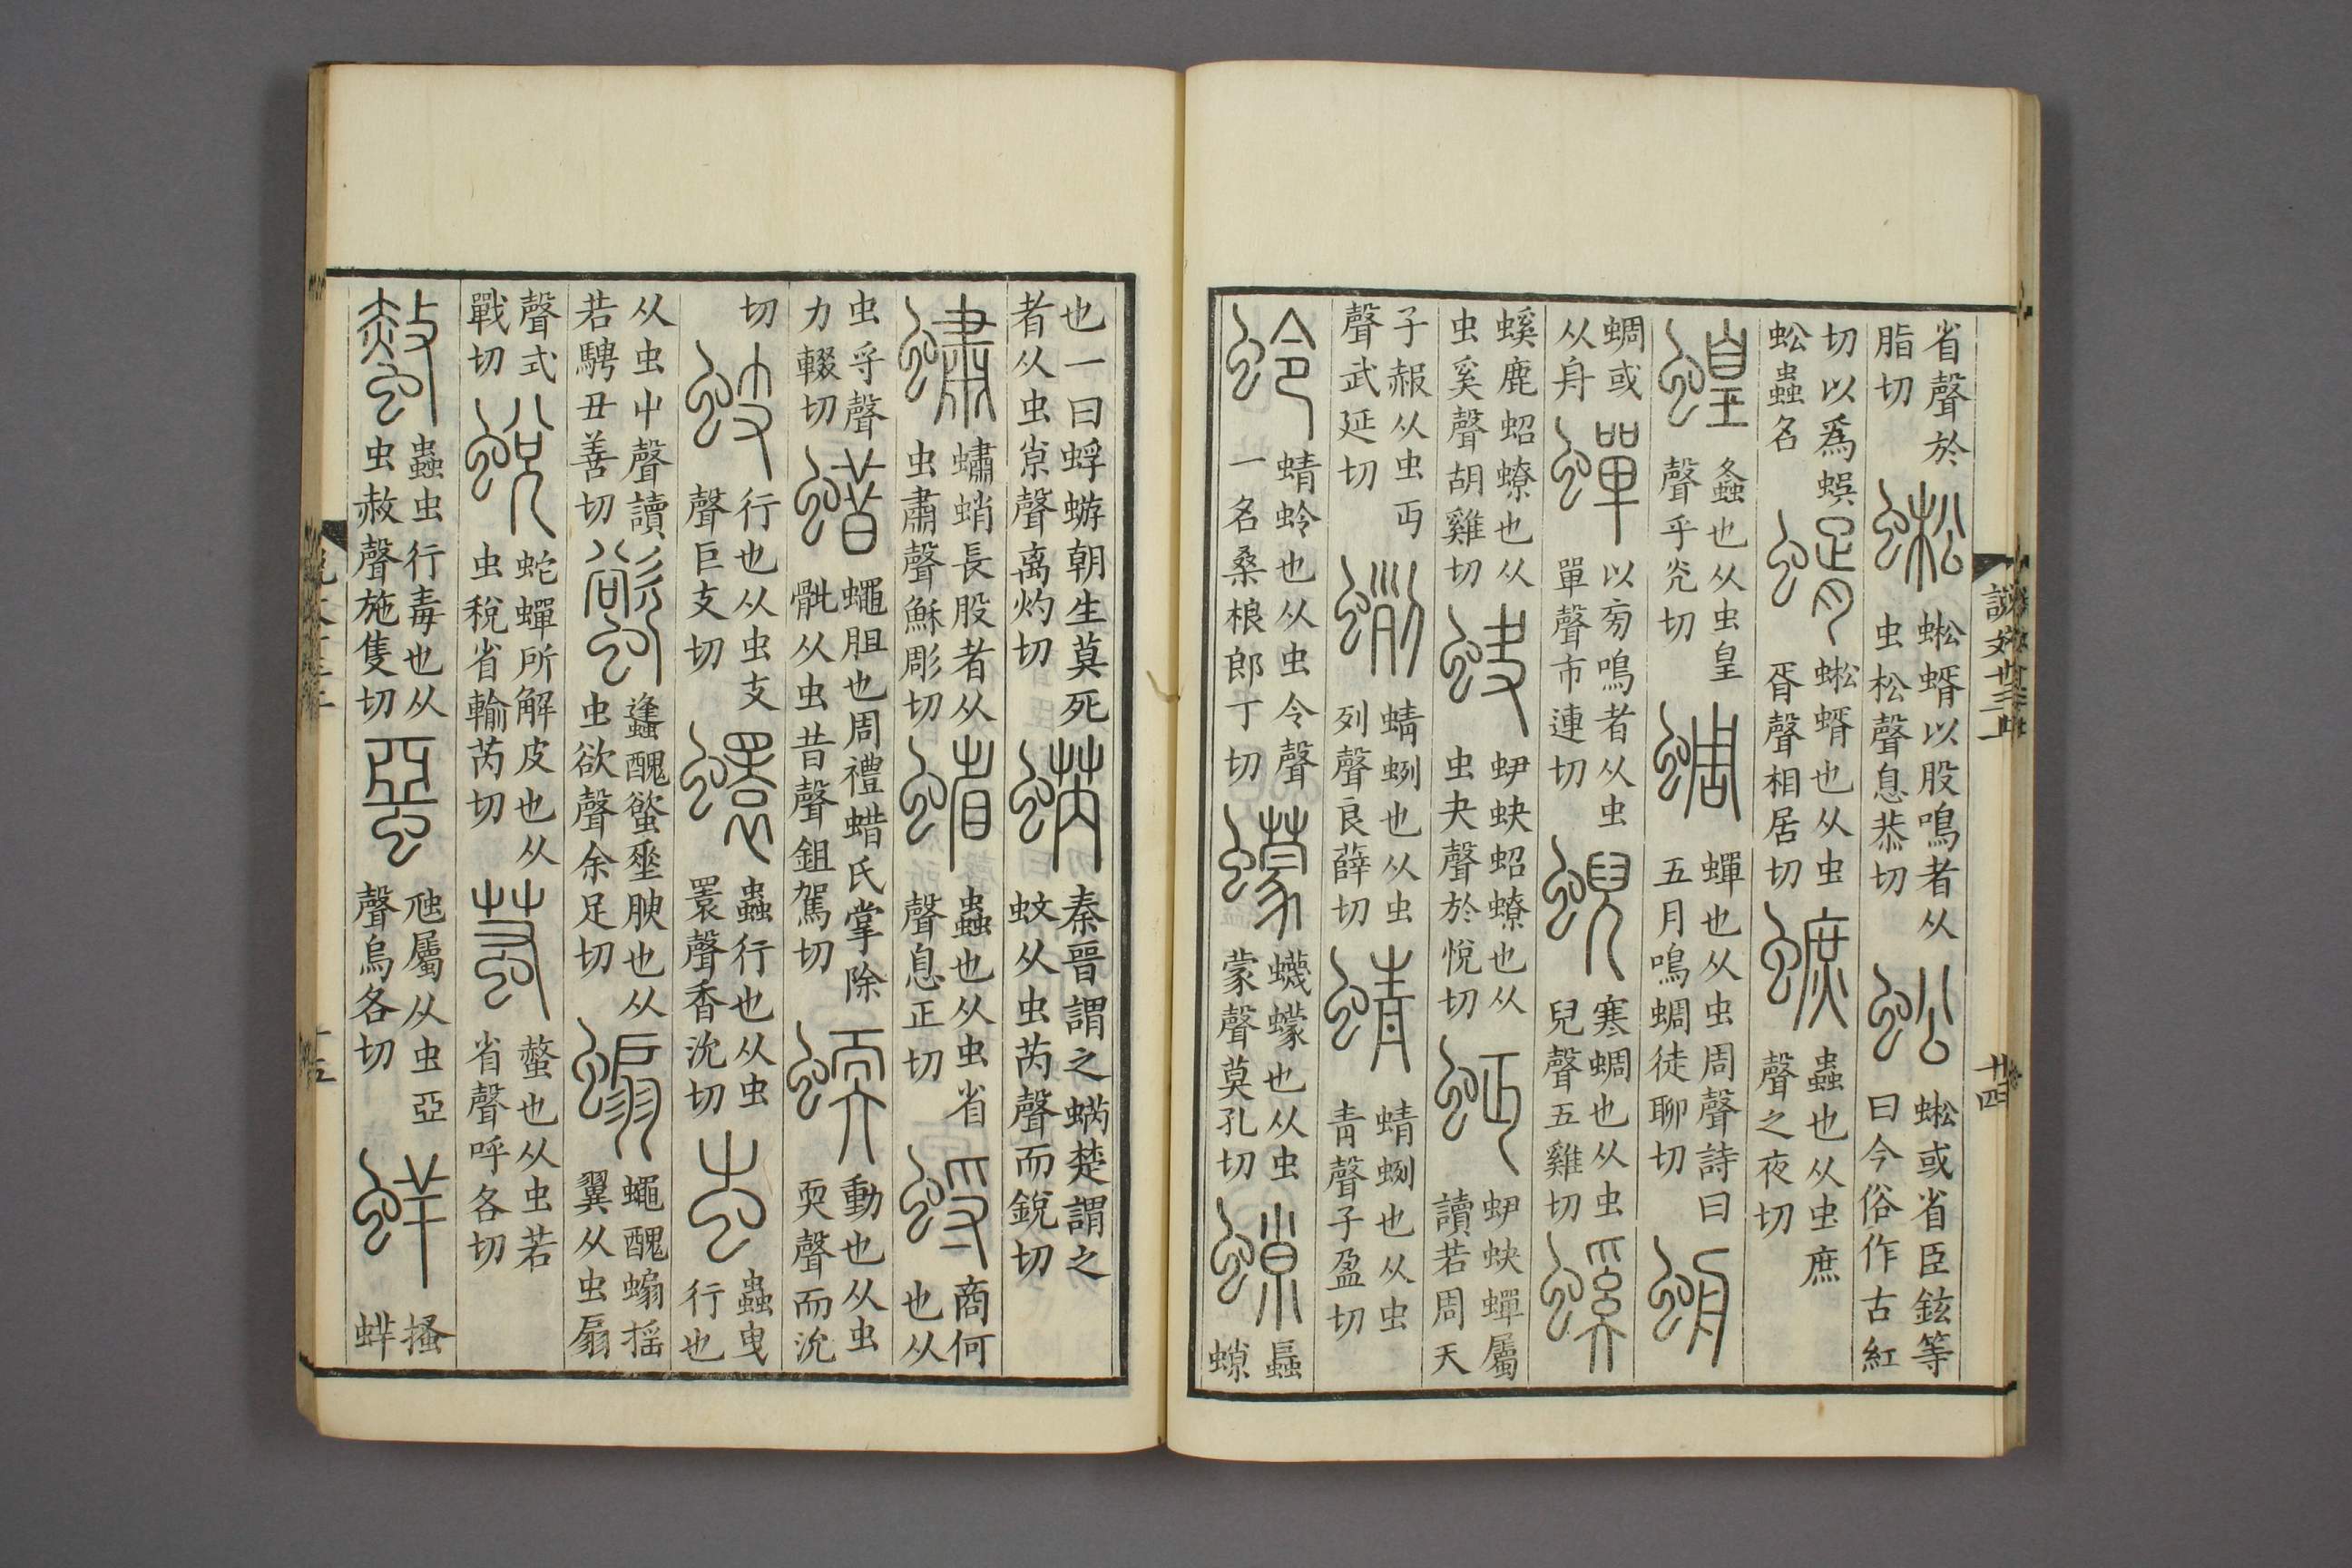 省聲於脂切 蜙 蜙蝑以股鳴者从虫松聲息恭切 蚣 蜙或省臣鉉等曰今俗作古紅
切以爲蜈蚣蟲名 蝑 蜙蝑也从虫胥聲相居切 蟅 蟲也从虫庶聲之夜切
蝗 螽也从虫皇聲乎光切 蜩 蟬也从虫周聲詩曰五月鳴蜩徒聊切 𧊱
蜩或从舟 蟬 以㫄鳴者从虫單聲市連切 蜺 寒蜩也从虫兒聲五雞切 螇
螇鹿蛁蟟也从虫奚聲胡雞切 蚗 蚈蚗蛁蟟也从虫夬聲於悅切 𧉢 蚈蚗蟬屬讀若周天
子赧从虫丏聲武延切 蛚 蜻蛚也从虫列聲良薛切 蜻 蜻蛚也从虫青聲子盈切
蛉 蜻蛉也从虫令聲一名桑桹郎丁切 蠓 蠛蠓也从虫蒙聲莫孔切 𧎾 螶𧎾
說文十三上
十四
也一曰蜉蝣朝生莫死者从虫㝮聲离灼切 蜹 秦晉謂之蜹楚謂之蚊从虫芮聲而銳切
蠨 蠨蛸長股者从虫肅聲穌彫切 蝔 蟲也从虫省聲息正切 蛶 商何也从
虫寽聲力輟切 蜡 蠅䏣也周禮蜡氏掌除骴从虫昔聲鉏駕切 蝡 動也从虫耎聲而沇
切 蚑 行也从虫支聲巨支切 蠉 蟲行也从虫瞏聲香沇切 蚩 蟲曳行也
从虫屮聲讀若騁丑善切 螸 䗬醜螸垂腴也从虫欲聲余足切 蝙 蠅醜蝙搖翼从虫扇
聲式戰切 蛻 蛇蟬所解皮也从虫稅省輸芮切 蠚 螫也从虫若省聲呼各切
螫 蟲行毒也从虫赦聲施隻切 蝁 虺屬从虫亞聲烏各切 蛘 搔蛘
十五